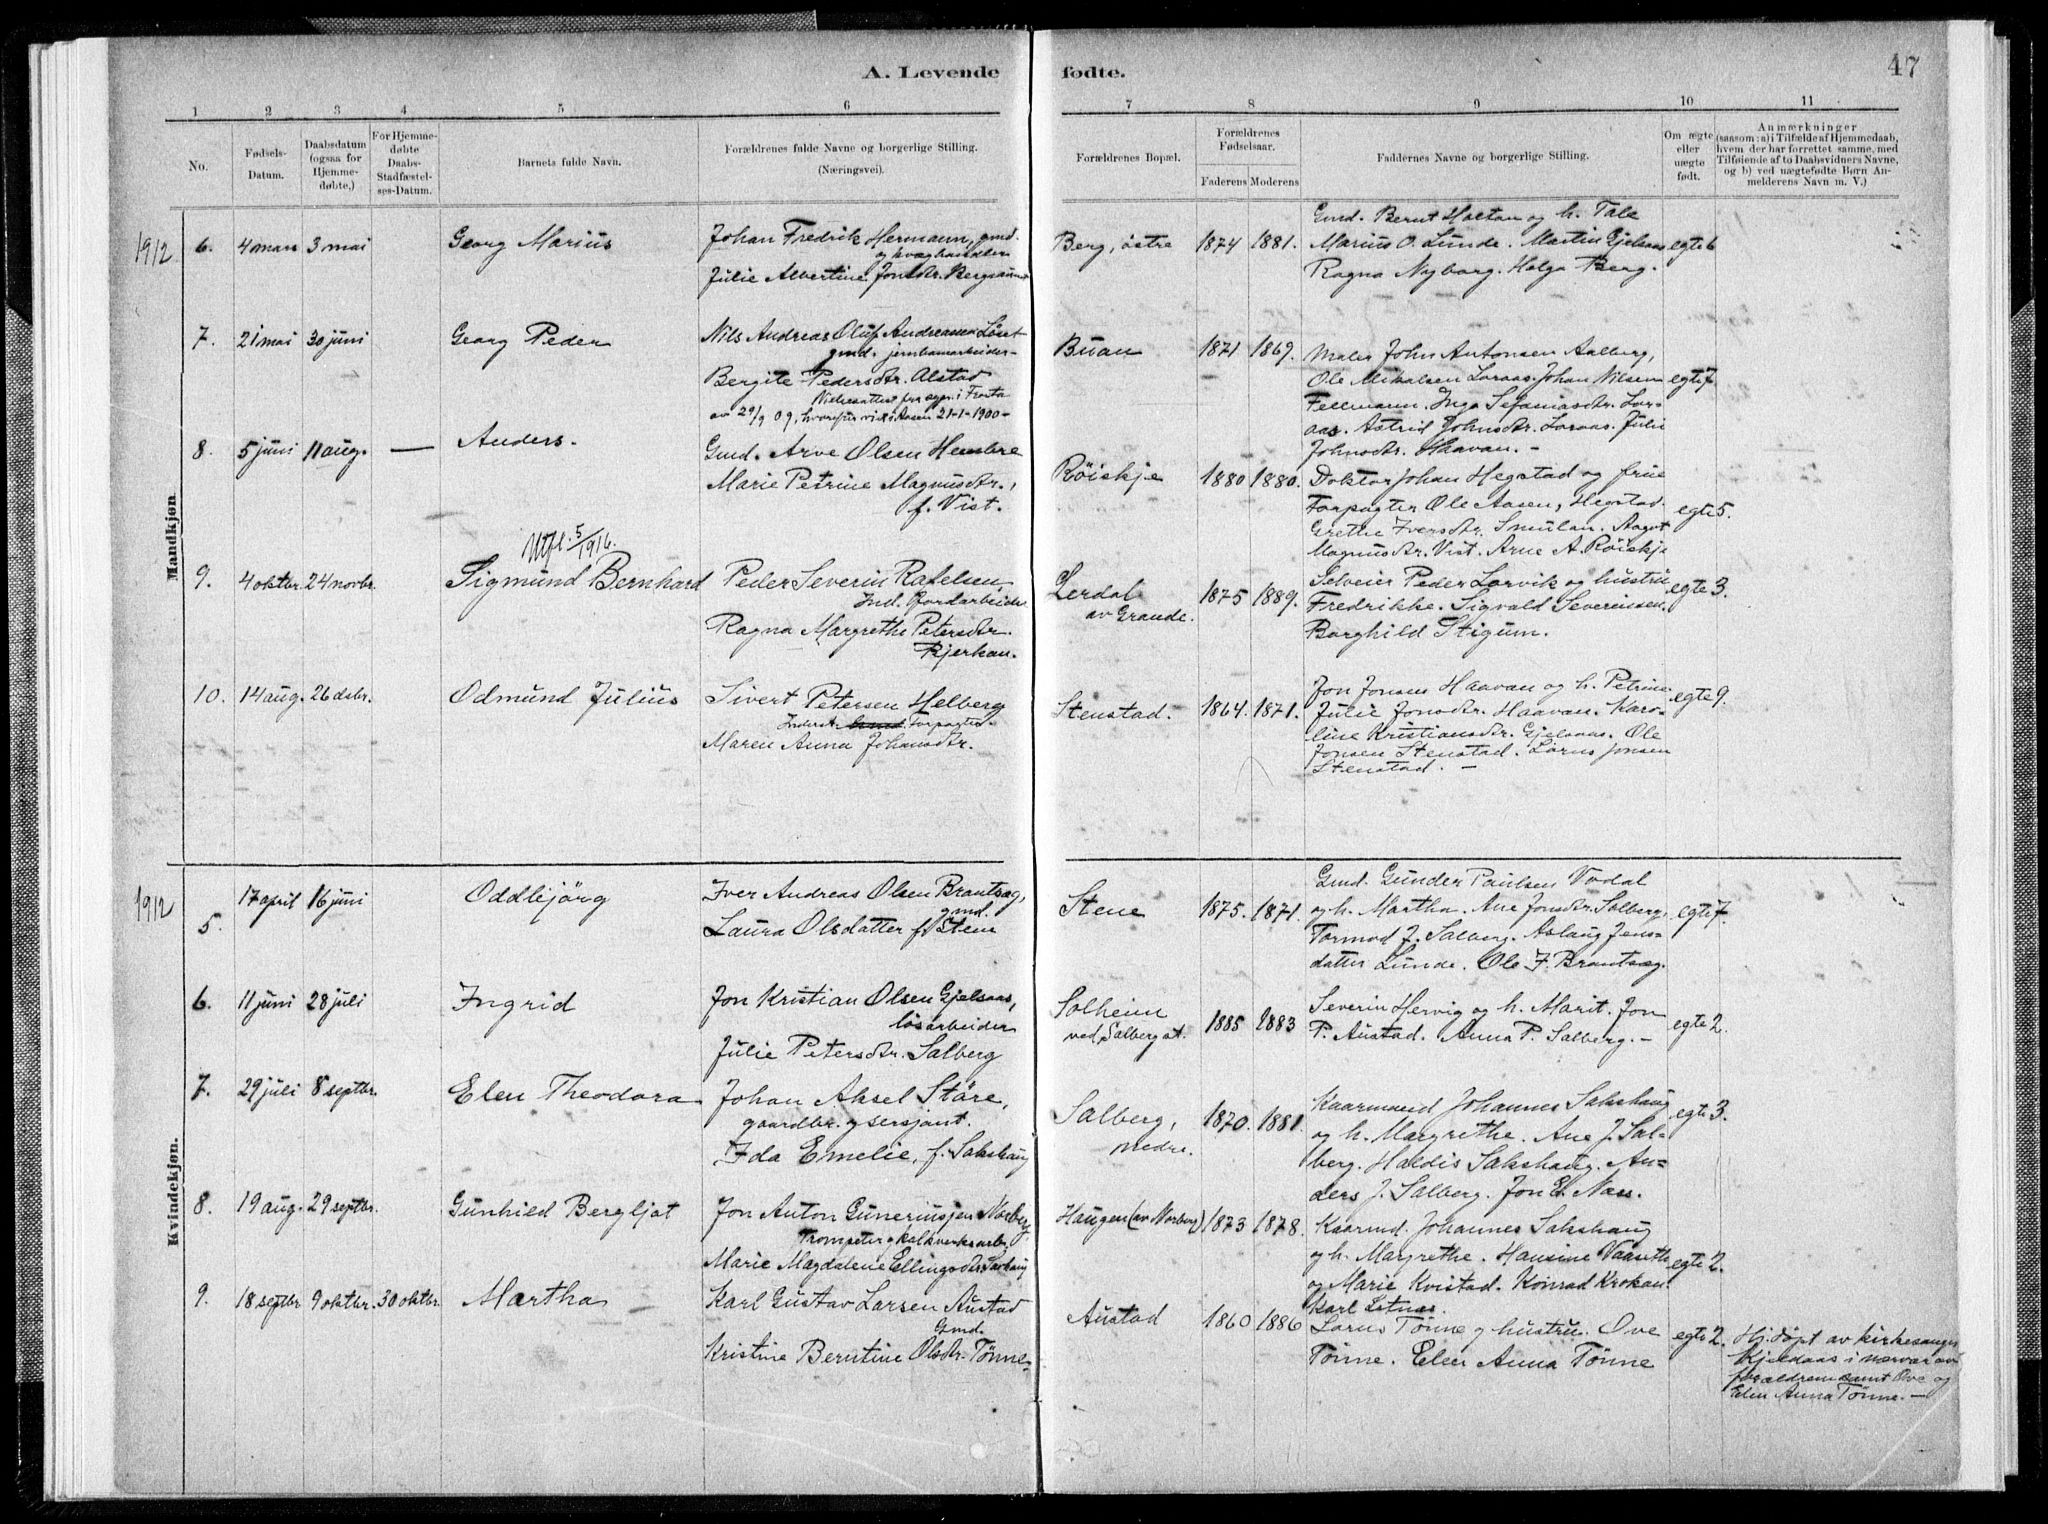 A. Levende fødte. 47
1 2 3 4 5 6 7 8 9 10 11
No.
Fødsels-
Datum.
Daabsdatum
(ogsaa for
Hjemme-
døbte,)
For Hjemme-
døbte
Daabs-
Stadfæstel-
ses-Datum.
Barnets fulde Navn.
Forældrenes fulde Navne og borgerlige Stilling.
(Næringsvei).
Forældrenes Bopæl.
Forældrenes
Fødselsaar.
Faderens Moderens
Faddernes Navne og borgerlige Stilling.
Om ægte
eller
uægte
født.
Anmærkninger
(saasom: a) i Tilfælde af Hjemmedaab,
hvem der har forrettet samme, med
Tilføiende af to Daabsvidners Navne,
og b) ved uægtefødte Børn An-
melderens Navn m. V.)
Mandkjøn
1912
6. 4 mars 3 mai
Georg Marius
Johan Fredrik Hermann, gmd.
og kvæghandler
Julie Albertine Jonsdtr. Bergsaune
Berg, østre
1874 1881.
Gmd. Bernt Holtan og h. Tale
Marius O. Lunde. Martin Gjelsaas
Ragna Nyborg. Helga Berg.
egte 6
7. 21 mai 30 juni
Georg Peder
Nils Andreas Oluf Andreassen Löset
gmd. jernbanearbeider-
Bergite Pedersdtr. Alstad
av 29/9 09, 21-1-1900-
Buan
1871 1869.
Maler John Antonsen Aalberg,
Ole Mikalsen Loraas. Johan Nilsen
Fellmann. Inga Sefaniasdtr. Lor-
aas. Astrid Johnsdtr. Loraas. Julie
Johnsdtr. Haavan. -
egte 7
8. 5 juni 11 aug. —
Anders.
Gmd. Arve Olsen Hembre
Marie Petrine Magnusdtr.,
f. Vist.
Röiskje
1880 1880.
Doktor Johan Hegstad og frue
Forpagter Ole Aasen, Hegstad.
Grethe Iversdtr. Smulan. Aagot
Magnusdtr. Vist. Arne A. Röiskje
egte 5.
Utfl. 5/1916.
9. 4 oktbr. 24 novbr.
Sigmund Bernhard
Peder Severin Rafelsen,
Ind. jordarbeider
Ragna Margrethe Petersdtr.
Bjerkan.
Lerdal
av Grande.
1875 1889.
Selveier Peder Lorvik og hustru
Fredrikke. Sigvald Severinsen.
Borghild Stigum.
egte 3.
10. 14 aug. 26 dsbr.
Odmund Julius
Sivert Petersen Helberg
Inderst. Gmd. Forpagter.
Maren Anna Johansdtr.
Stenstad.
1864. 1871.
Jon Jonsen Haavan og h. Petrine
Julie Jonsdtr. Haavan. Karo-
line Kristiansdtr. Gjelsaas. Ole
Jonsen Stenstad. Lorns Jonsen
Stenstad. -
egte 9.
Kvindekjøn.
1912
5. 17 april 16 juni
Oddbjörg
Iver Andreas Olsen Brantsæg,
gmd.
Laura Olsdatter f. Stene
Stene
1875. 1871.
Gmd. Gunder Paulsen Vodal
og h. Martha. Ane Jonsdtr. Salberg,
Tormod J. Salberg. Aslaug Jens-
datter Lunde. Ole I. Brantsæg.
egte 7.
6. 11 juni 28 juli
Ingrid
Jon Kristian Olsen Gjelsaas,
lösarbeider
Julie Petersdtr. Salberg
Solheim
ved Salberg st.
1885 1883
Severin Hervig og h. Marit. Jon
P. Austad. Anna P. Salberg. -
egte 2.
7. 29 juli 8 septbr.
Elen Theodora
Johan Aksel Störe,
gaardbr. og sersjant.
Ida Emelie, f. Sakshaug
Salberg,
nedre.
1870. 1881.
Kaarmand Johannes Sakshaug
og h. Margrethe. Ane J. Sal-
berg. Haldis Sakshaug. An-
ders J. Salberg. Jon E. Næss.
egte 3.
8. 19 aug. 29 septbr.
Gunhild Bergljot
Jon Anton Guneriussen Norberg,
Trompeter og kalkverksarb.
Marie Magdalene Ellingsdtr. Saxhaug
Haugen (av Norberg)
1873 1878.
Kaarmd. Johannes Sakshaug
og h. Margrethe. Hansine Vaaseth
og Marie Kvistad. Konrad Krokan.
Karl Letnes.
egte 2.
9. 18 septbr 9 oktbr. 30 oktbr.
Martha
Karl Gustav Larsen Austad
Gmd.
Kristine Berntine Olsdtr. Tönne.
Austad
1860 1886
Lorns Tönne og hustru. Ove
Tönne. Elen Anna Tönne
egte 2.
Hj.döpt av kirkesanger
Kjeldaas i nærvær av
forældrene samt Ove og
Elen Anna Tönne. -